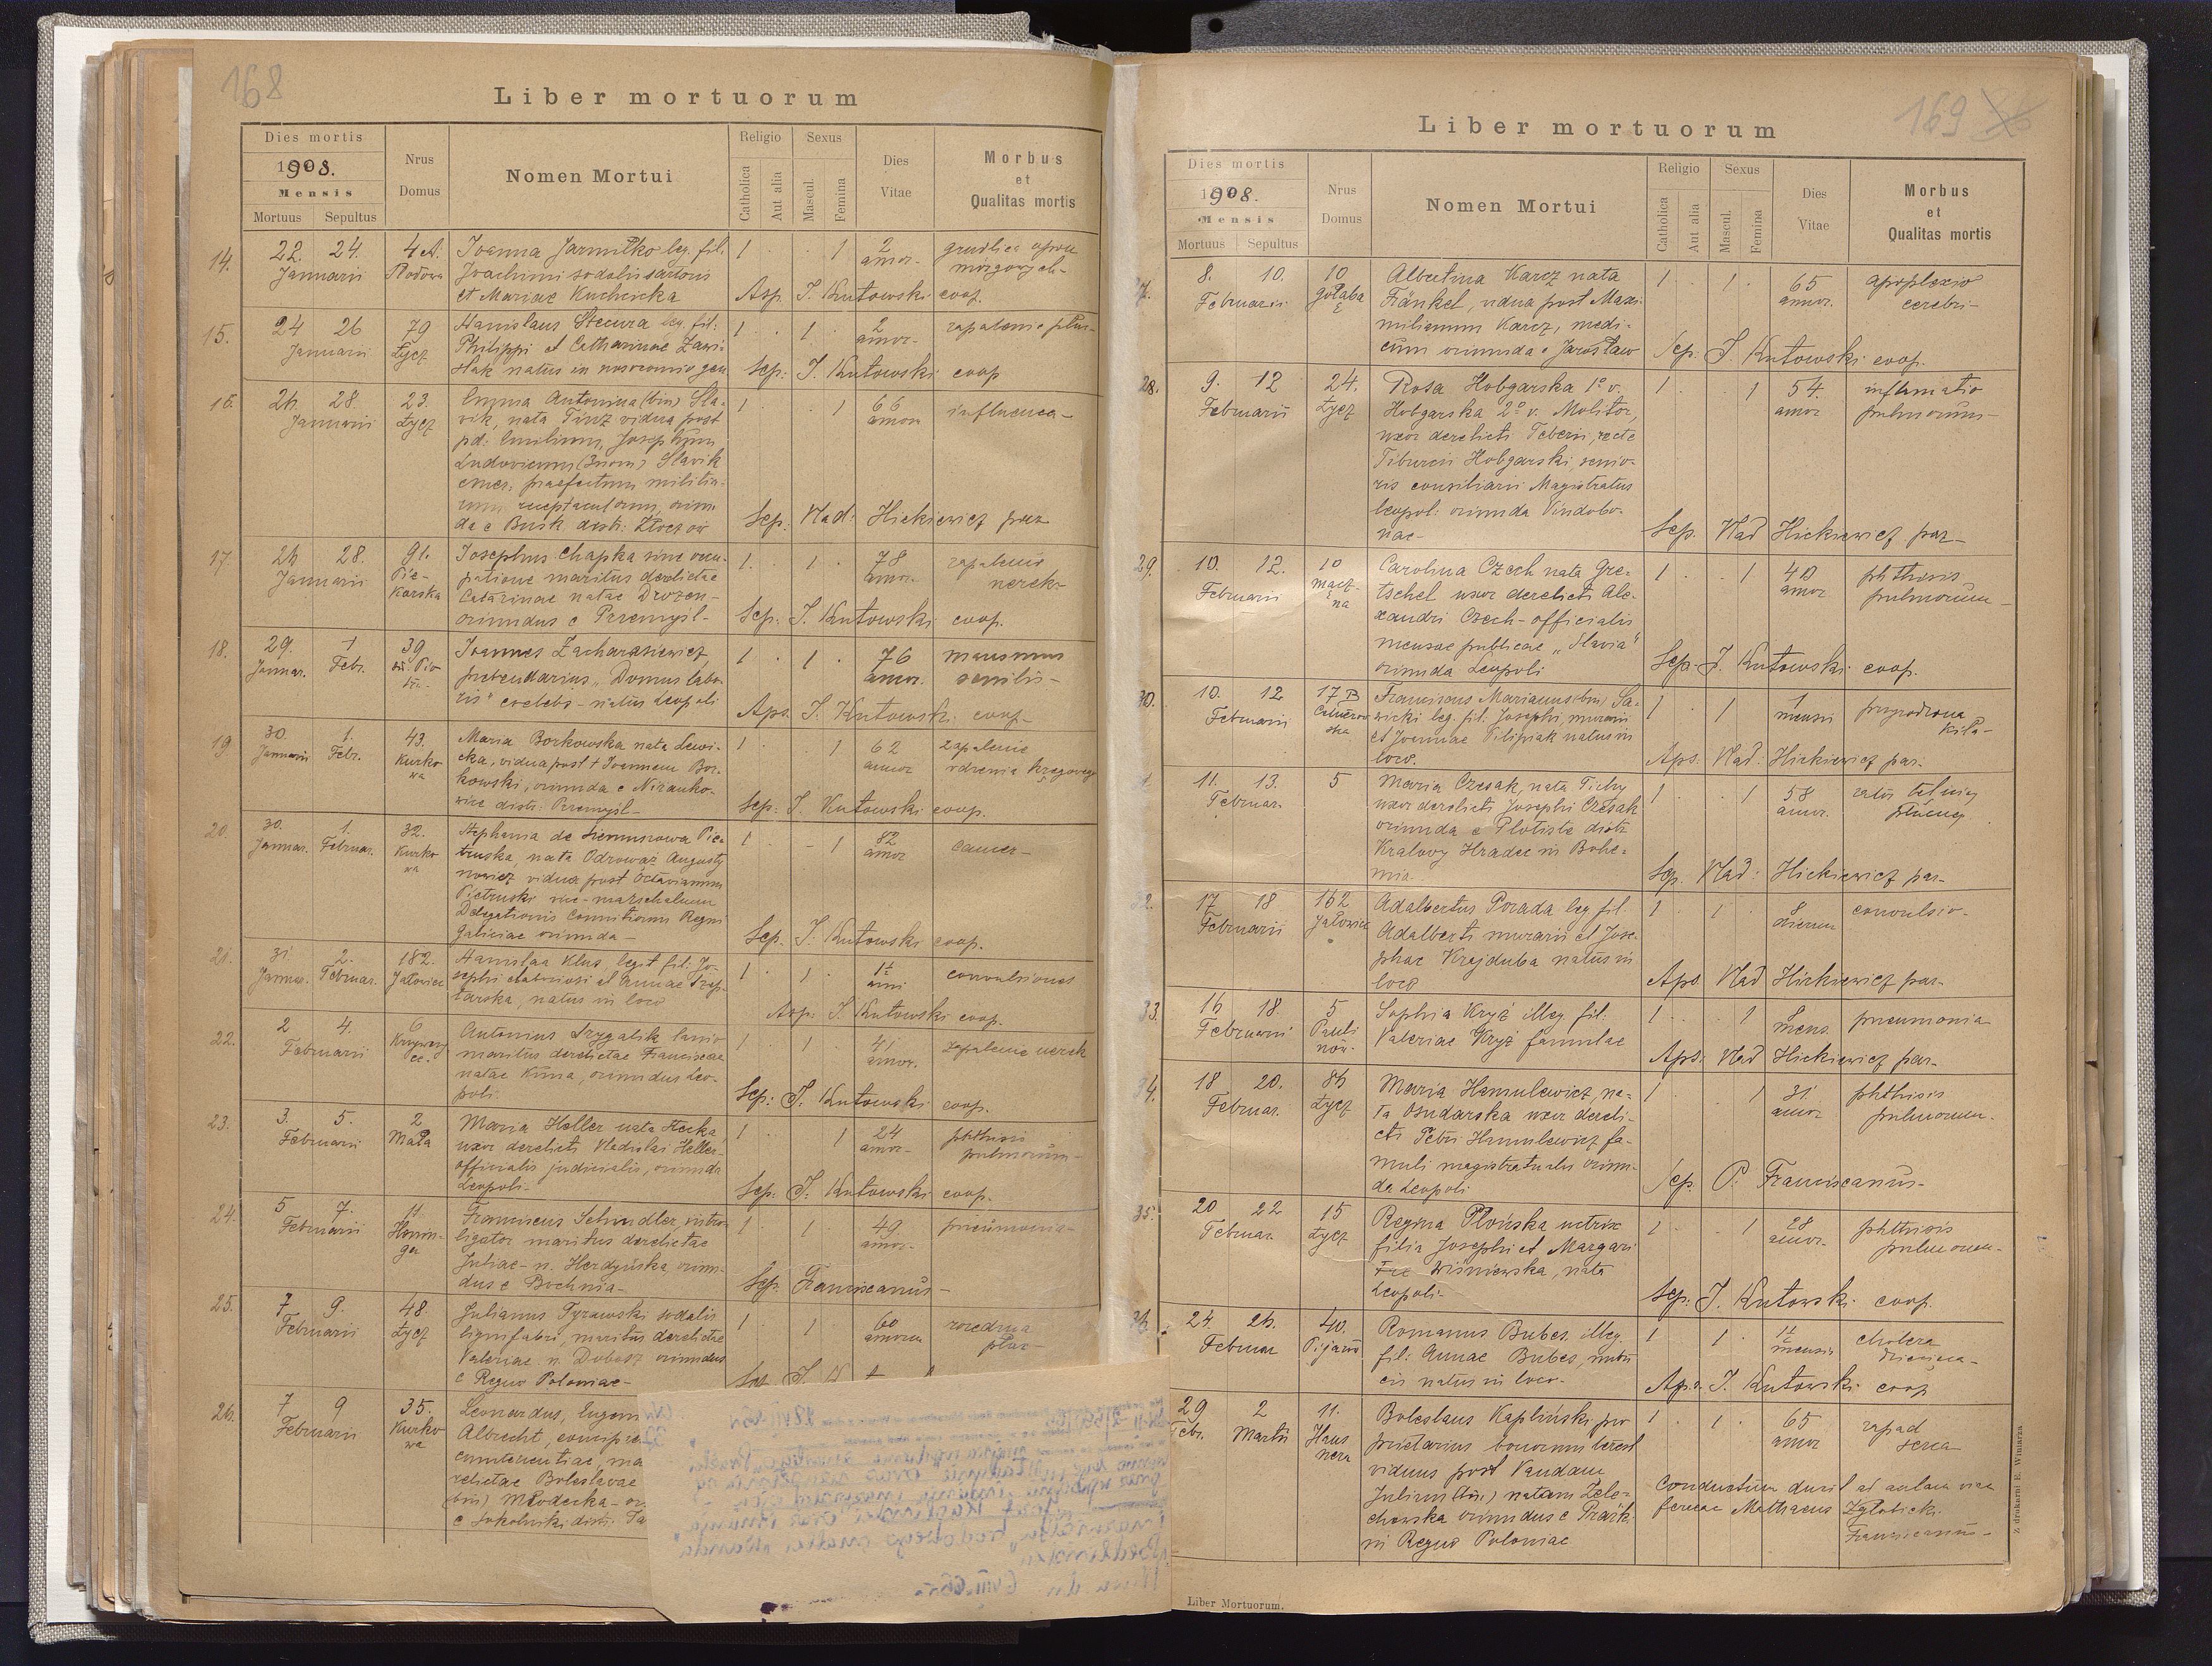 168
Liber mortuorum
Dies mortis
1908.
Mensis
Mortuus Sepultus
Nrus
Domus
Nomen Mortui
Religio
Catholica
Aut alia
Sexus
Mascul.
Femina
Dies
Vitae
Morbus
et
Qualitas mortis
14.
22. 24.
Januarii
4 A.
Joanna Jarmułko leg. fil.
Joachimi sodalis sartoris
et Mariae Kuchcicka
1 1
2
annor.
gruźlica opon
mózgowych
Asp. J. Kutowski coop.
15.
24 26
Januarii
79
Łycz
Stanislaus Stecura leg. fil.
Philippi et Catharinae Zawi-
ślak natus in nosocomio gen
1 1
2
annor.
zapalenie płuc
Sep: J. Kutowski coop
16.
26 28
Januarii
23.
Łycz
Emma Antonina (bin) Sla-
vik, nata Tinz vidua post
pd. Emilium, Josephum
Ludovicum (3nom) Slavik
emer. praefectum milita-
rium receptaculorum, oriun-
da e Busk distr: Złoczów
1 1
66
annor
influenca
Sep: Vlad: Hickiewicz
17.
26 28.
Januarii
91.
Pie-
karska
Josephus Chapka sine occu-
patione maritus derelictae
Catarinae natae Drozen-
oriundus e Przemyśl
1. 1
78
annor.
zapalenie
nerek
Sep: J. Kutowski coop.
18.
29. 1
Januar. Febr.
39
Joannes Zacharasiewicz
prebendarius "Domus labo-
ris" coelebs - natus Leopoli
1 1
76
annor.
marasmus
senilis
Aps. J. Kutowski coop
19
30. 1.
Januarii Febr.
43.
Kurko
wa
Maria Borkowska nata Lewi-
cka, vidua post + Joannem Bor-
kowski, oriunda e Nizanko-
wice distr: Przemyśl
1 1
62
annor
zapalenie
rdzenia kręgowego
Sep: J. Kutowski coop.
20.
30. 1.
Januar. Februar.
32.
Kurko
wa
Stephania de Siemuszowa Pie-
truska, nata Odrowaz Augusty
nowicz vidua post Octavianum
Pietruski vice-marschalum
Delegationis Comitiorum Regni
Galiciae oriunda
1 1
82
annor
cancer
Sep. J. Kutowski coop.
21.
31 2.
Januar. Februar.
182.
Jałowiec
Stanislaa Klus legit. fil. Jo-
sephi elaboriosi et Annae
natus in loco
1 1
1½
anni
convulsiones
Asp: J. Kutowski coop.
22.
2 4.
Februarii
6
Antonius Szygalik lanio
maritus derelictae Franciscae
natae Kuna, oriundus Leo-
poli.
1 1
41
annor.
zapalenie nerek
Sep: J. Kutowski coop.
23.
3. 5.
Februarii
2
Mała
Maria Heller nata Stecka
uxor derelicti Vladislai Heller
officialis judicialis, oriunda
Leopoli
1 1
24
annor
phthisis
pulmorum
Sep: J: Kutowski coop.
24.
5 7.
Februarii
11
Honin-
ga
Franciscus Schindler, intro-
ligator maritus derelictae
Juliae n. Herdyńska, oriun-
dus e Bochnia
1 1
49
annor.
pneumonia
Sep. Franciscanus
25.
7 9.
Februarii
48.
Łycz
Julianus Tyrawski sodalis
lignifabri, maritus derelictae
Valeriae n. Dobosz oriundus
e Regno Poloniae
1 1
60
annorum
rozedma
płuc
26.
7 9
Februarii
35.
Kurko
wa
Leonardus, Eugen
Albrecht,
relictae Boleslavae
(bin) Młodecka
169
Liber mortuorum
Dies mortis
1908.
Mensis
Mortuus Sepultus
Nrus
Domus
Nomen Mortui
Religio
Catholica
Aut alia
Sexus
Mascul.
Femina
Dies
Vitae
Morbus
et
Qualitas mortis
8. 10.
Februarii
10
Gołąba
Albertina Karcz nata
Fränkel, vidua post Maxi-
milianum Karcz, medi-
cum oriunda e Jarosław
1 1
65
annor.
apoplexio
cerebri
Sep: J. Kutowski coop.
28.
9. 12
Februarii
24.
Łycz
Rosa Hobgarska 1º v.
Hobgarska 2º v. Molitor,
uxor derelicti Teberii, recte
Tiburcii Hobgarski, senio-
ris consiliarii Magistratus
Leopol: oriunda Vindobo-
nae
1 1
54.
annor
inflamatio
pulmorum
Sep. Vlad Hickiewicz par
29.
10. 12.
Februarii
10
Carolina Czech nata Gre-
tschel uxor derelicti Ale-
xandri Czech - officialis
mensae publicae "Slavia"
oriunda Leopoli
1 1
40
annor
phthisis
pulmorum
Sep. J. Kutowski coop.
30.
10. 12
Februarii
17 B
Franciscus Marianus (bin) Sa-
wicki leg. fil. Josephi, murarii
et Joannae Filipiak natus in
loco.
1 1
1
mensis
przyrodzona
kiła
Aps. Vlad: Hickiewicz par.
11. 13.
Februar.
5
Maria Czesak, nata Tichy
uxor derelicti Josephi Czesak
oriunda e Plotiste distr.
Kralovy Hradec in Bohe-
mia
1 1
58
annor.
płucnej
Sep. Vlad: Hickiewicz par
32.
17 18
Februarii
162
Jałowiec
Adalbertus Porada leg. fil.
Adalberti murarii et Jose-
phae Krajduba natus in
loco
1 1
8
dierum
convulsio
Aps Vlad Hickiewicz par
33.
16 18.
Februarii
5
Pauli
nów.
Sophia Kryż illeg. fil.
Valeriae Kryż famulae
1 1
8
mens.
pneumonia
Aps. Vlad Hickiewicz par
34.
18 20.
Februar.
86
Łycz
Maria Hamulewicz, na-
ta Osudarska uxor dereli-
cti Petri Hamulewicz fa-
muli magistratualis oriun-
da Leopoli
1 1
31
annor
phthisis
pulmorum
Sep. P. Franciscanus
35.
20 22
Februar.
15
Łycz
Regina Płońska nutrix
filia Josephi et Margari
tae Wiśniewska, nata
Leopoli
1 1
28
annor.
phthisis
pulmorum
Sep. J. Kutowski coop.
36.
24. 26.
Februar
40.
Pijarów
Romanus Bubes. illeg.
fil: Annae Bubes, nutri
cis natus in loco
1 1
1½
mensis
cholera
dziecięca
Aps. J. Kutowski coop
29 2
Febr. Martii
11.
Haus
nera
Boleslaus Kapliński pro
prietarius bonorum
viduus post Vandam
Juliam (bin) natam Żele-
chowska oriundus e
in Regno Poloniae
1 1
65
annor
zapad
serca
Conductum duxit ad aulam viae
ferreae Mathaeus
Franciscanus
Liber Mortuorum.
Z drukarni E. Winiarza